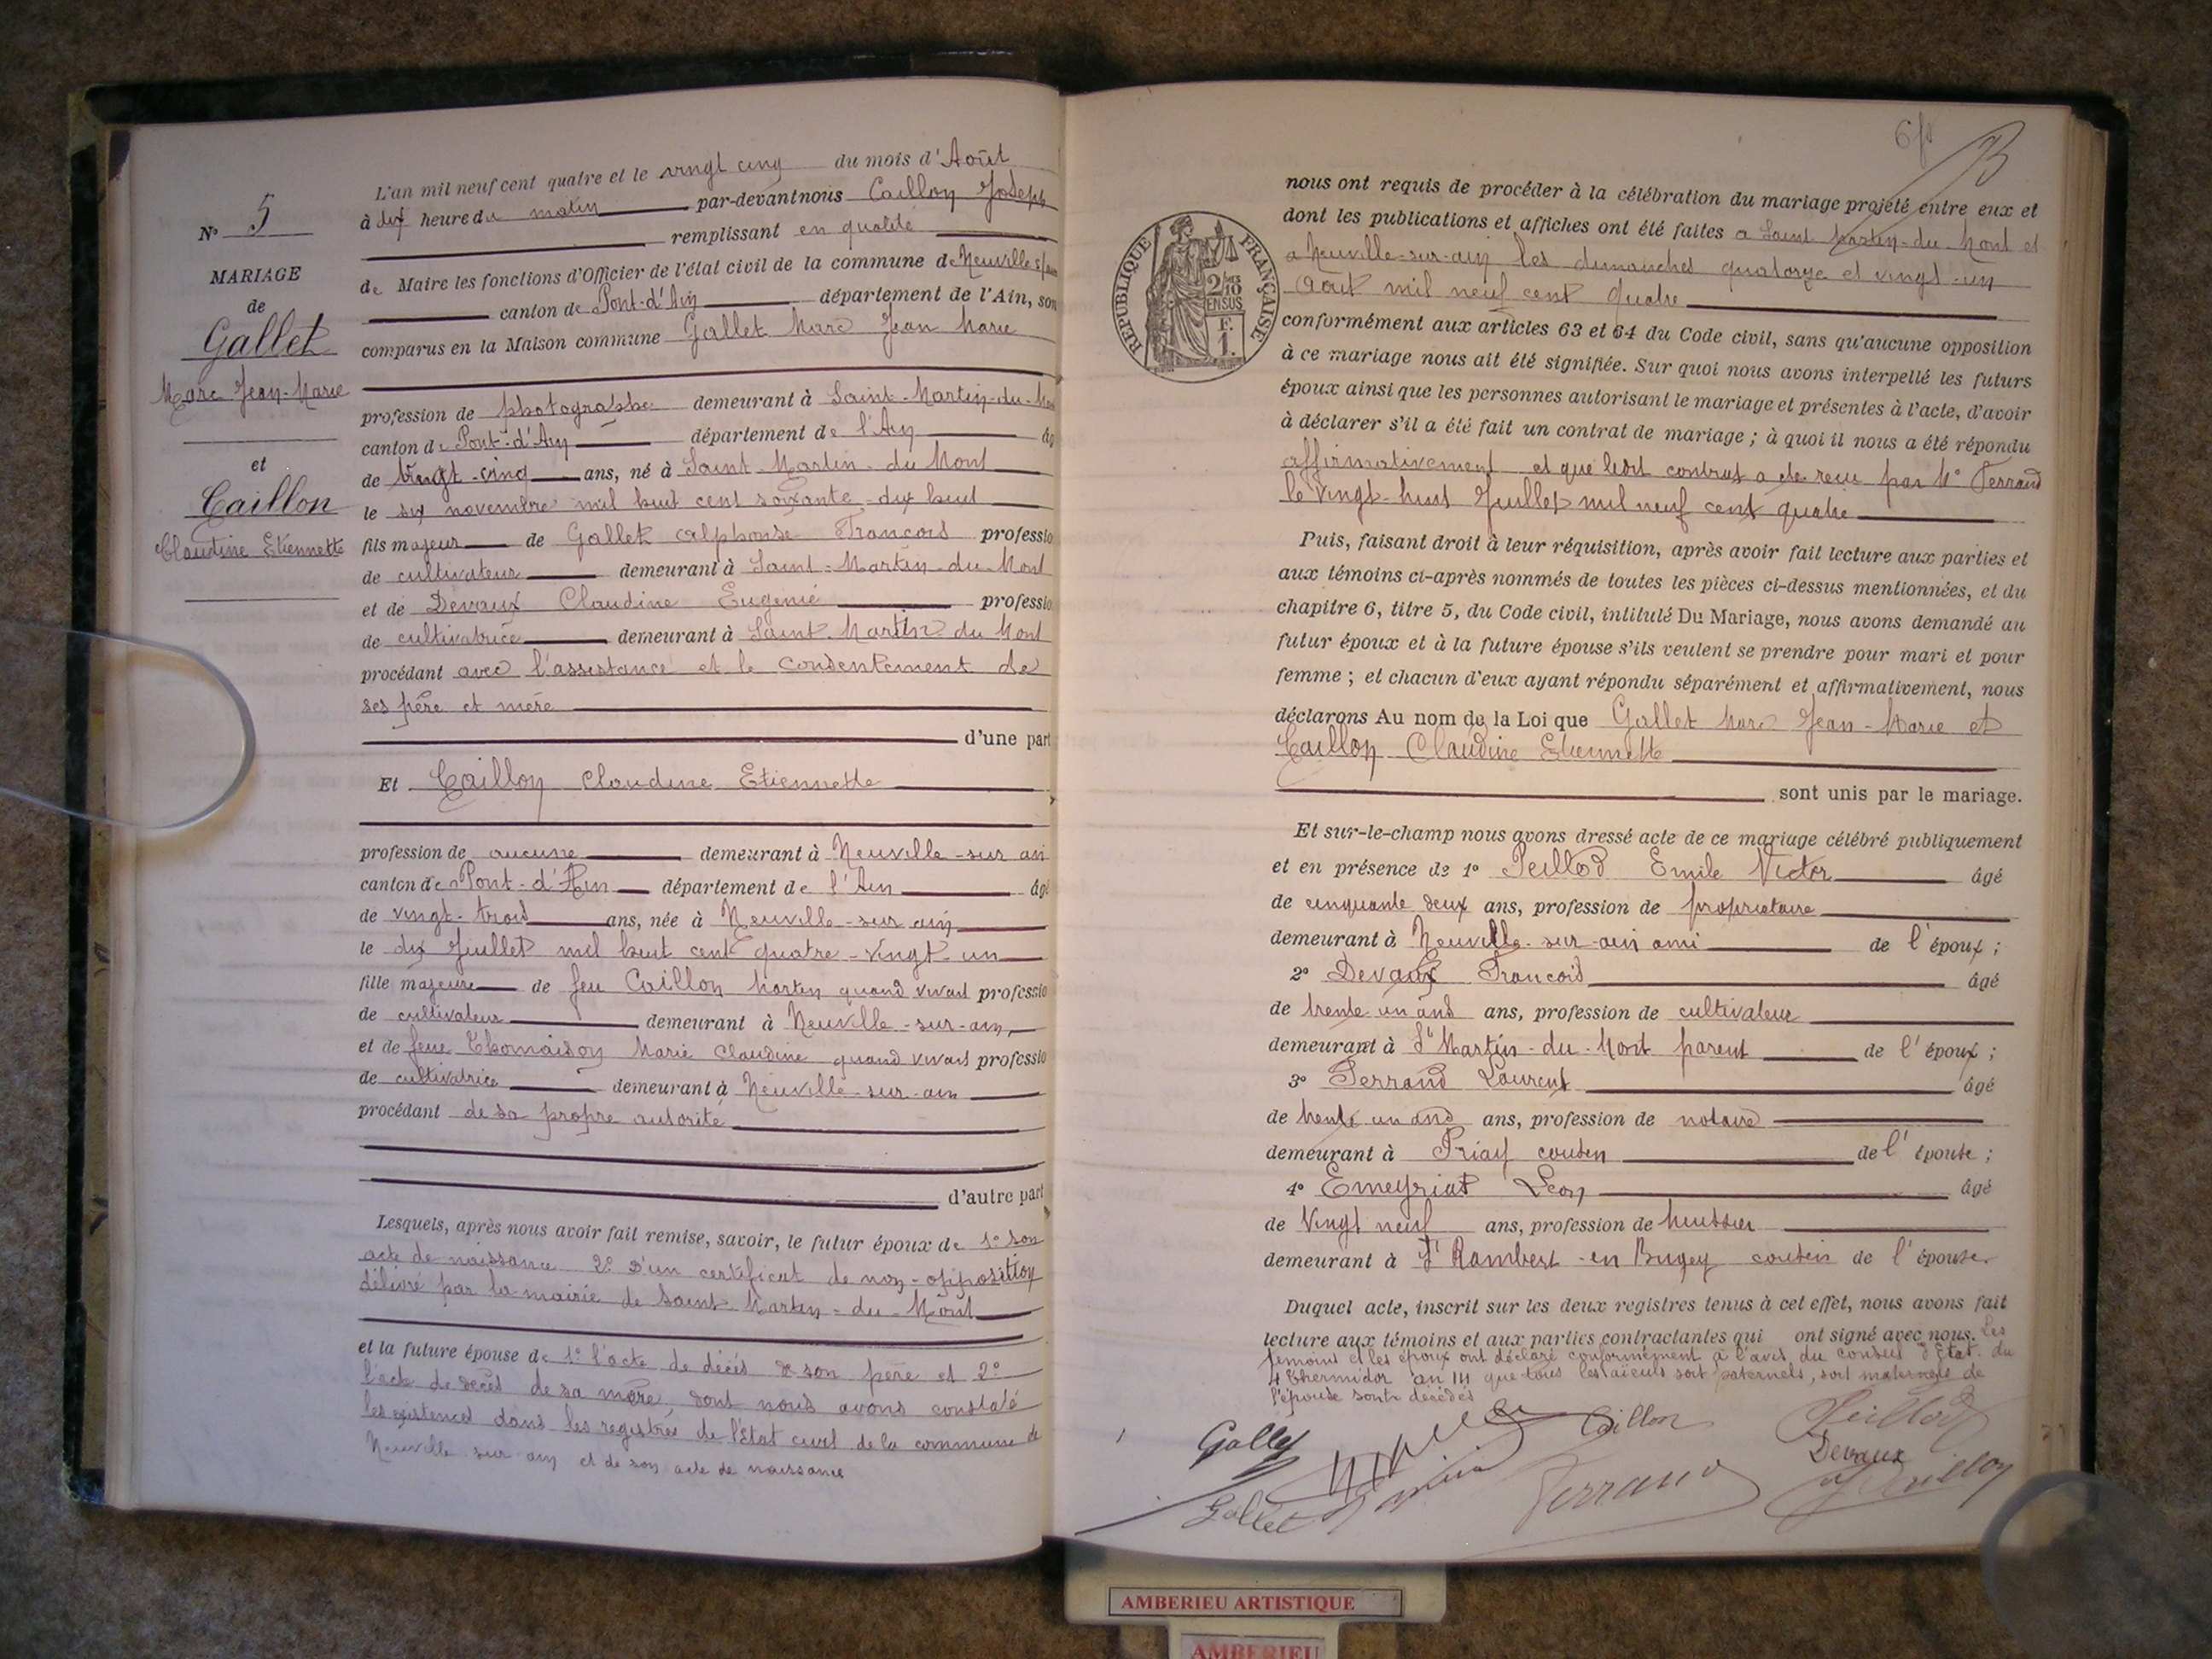 N° 5
MARIAGE
de
Gallet
Marc Jean-Marie
et
Caillon
Claudine Etiennette
L'an mil neuf cent quatre et le vingt cinq du mois d'Août
à dix heure du matin par-devant nous Caillon Joseph
remplissant en qualité
de Maire les fonctions d'Officier de l'état civil de la commune de Neuville s/ain
canton de Pont-d'Ain département de l'Ain, son
comparus en la Maison commune Gallet Marc Jean Marie
profession de photographe demeurant à Saint-Martin-du-Mon
canton de Pont-d'Ain département de l'Ain âg
de vingt-cinq ans, né à Saint Martin du Mont
le six novembre mil huit cent soixante-dix huit
fils majeur de Gallet Alphonse Francois professio
de cultivateur demeurant à Saint-Martin-du-Mont
et de Devaux Claudine Eugenie professio
de cultivatrice demeurant à Saint-Martin du Mont
procédant avec l'assistance et le consentement de
ses père et mère
d'une part
Et Caillon Claudine Etiennette
profession de aucune demeurant à Neuville-sur ain
canton de Pont-d'Ain département de l'Ain âgé
de vingt-trois ans, née à Neuville-sur ain
le dix Juillet mil huit cent quatre-vingt-un
fille majeure de feu Caillon Martin quand vivait professio
de cultivateur demeurant à Neuville-sur-ain
et de feue Thomaison Marie Claudine quand vivait professio
de cultivatrice demeurant à Neuville-sur-ain
procédant de sa propre autorité
d'autre part
Lesquels, après nous avoir fait remise, savoir, le futur époux de 1° son
acte de naissance 2° d'un certificat de non-opposition
délivré par la mairie de Saint-Martin-du-Mont
et la future épouse de 1° l'acte de décès de son père et 2°
l'acte de décès de sa mère, dont nous avons constaté
les existences dans les registres de l'état civil de la commune de
Neuville sur ain et de son acte de naissance
B
nous ont requis de procéder à la célébration du mariage projeté entre eux et
dont les publications et affiches ont été faites a Saint Martin-du-Mont et
a Neuville-sur-ain les dimanches quatorze et vingt-un
Août mil neuf cent quatre
conformément aux articles 63 et 64 du Code civil, sans qu'aucune opposition
à ce mariage nous ait été signifiée. Sur quoi nous avons interpellé les futurs
époux ainsi que les personnes autorisant le mariage et présentes à l'acte, d'avoir
à déclarer s'il a été fait un contrat de mariage ; à quoi il nous a été répondu
affirmativement et que ledit contrat a été reçu par Me Ferrand
le Vingt-huit Juillet mil neuf cent quatre
Puis, faisant droit à leur réquisition, après avoir fait lecture aux parties et
aux témoins ci-après nommés de toutes les pièces ci-dessus mentionnées, et du
chapitre 6, titre 5, du Code civil, intitulé Du Mariage, nous avons demandé au
futur époux et à la future épouse s'ils veulent se prendre pour mari et pour
femme ; et chacun d'eux ayant répondu séparément et affirmativement, nous
déclarons Au nom de la Loi que Gallet Marc Jean-Marie et
Caillon Claudine Etiennette
sont unis par le mariage.
Et sur-le-champ nous avons dressé acte de ce mariage célébré publiquement
et en présence de 1° Peillod Emile Victor âgé
de cinquante deux ans, profession de propriétaire
demeurant à Neuville-sur-ain ami de l'époux ;
2° Devaux Francois âgé
de trente un ans ans, profession de cultivateur
demeurant à St Martin-du-Mont parent de l'époux ;
3° Ferrand Laurent âgé
de trente un ans ans, profession de notaire
demeurant à Priay cousin de l'épouse ;
4° Emeyriat Leon âgé
de Vingt neuf ans, profession de huissier
demeurant à St Rambert-en Bugey cousin de l'épouse.
Duquel acte, inscrit sur les deux registres tenus à cet effet, nous avons fait
lecture aux témoins et aux parties contractantes qui ont signé avec nous. Les
témoins et les époux ont déclaré conformément à l'avis du conseil d'Etat du
4 thermidor an 14 que tous les aïeuls soit paternels, soit maternels de
l'épouse sont décédés
Gallet
Caillon
Peillod
Devaux
Gallet
Ferrand
RÉPUBLIQUE FRANÇAISE
2/10
EN SUS
F.
1.
AMBERIEU ARTISTIQUE
AMBERIEU